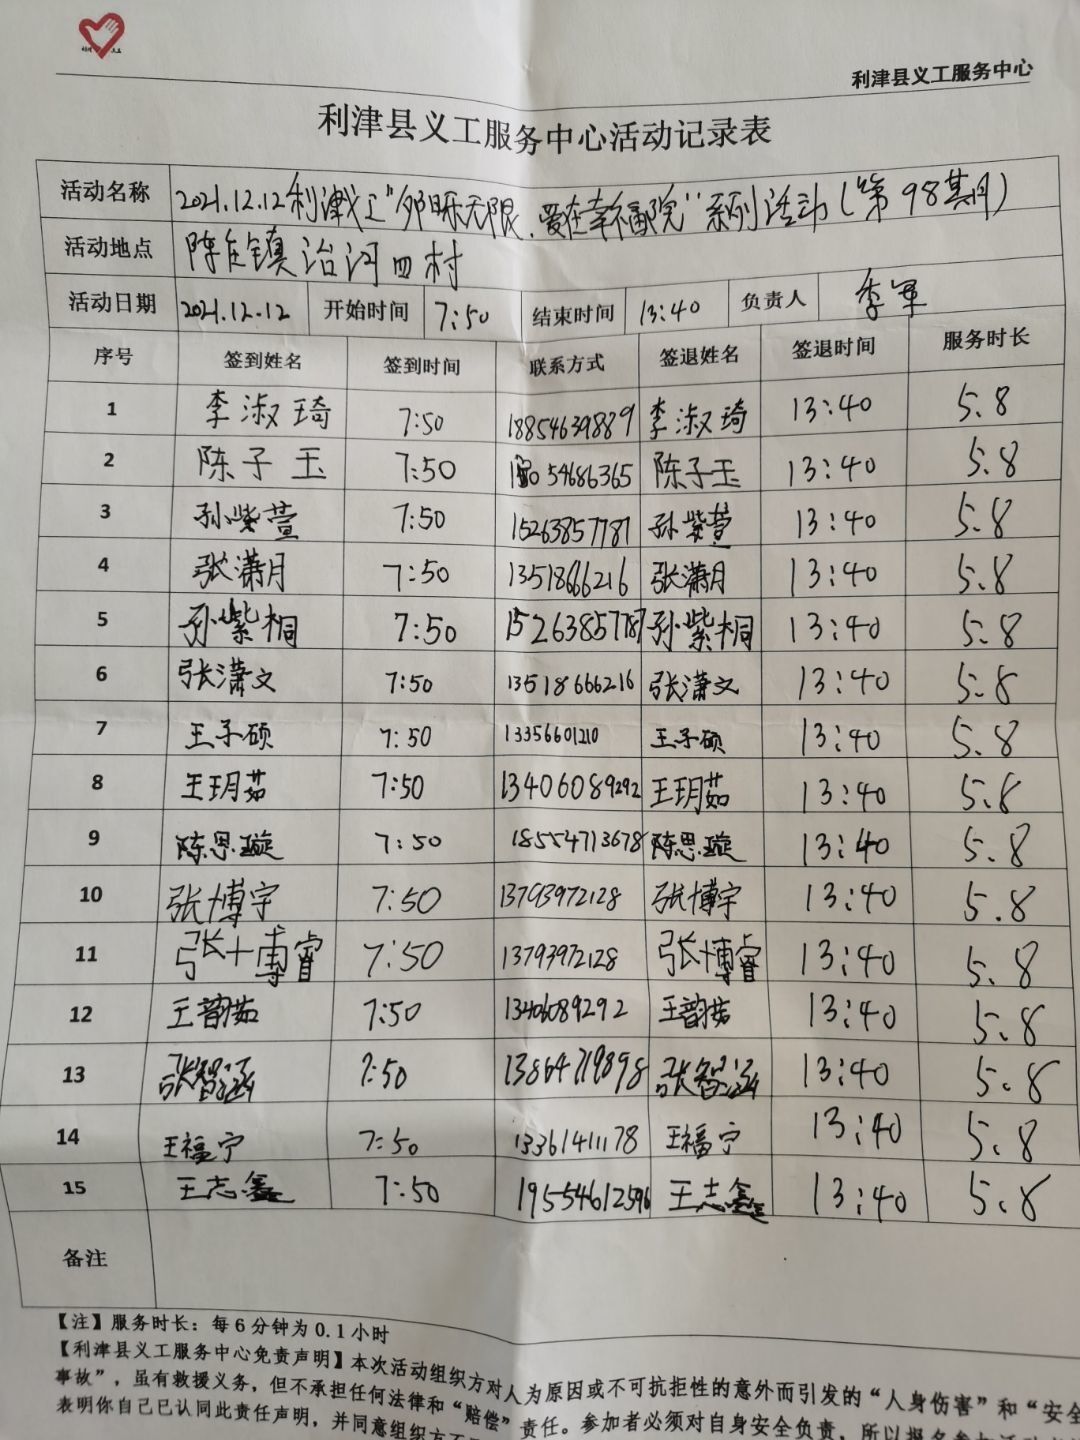 利津县义工服务中心
利津县义工服务中心活动记录表
活动名称 2021.12.12利津义工"夕阳乐无限、爱在幸福院"系列活动(第98期)
活动地点 陈庄镇治河四村
活动日期 2021.12.12 开始时间 7:50 结束时间 13:40 负责人 李军
序号 签到姓名 签到时间 联系方式 签退姓名 签退时间 服务时长
1 李淑琦 7:50 18854639889 李淑琦 13:40 5.8
2 陈子玉 7:50 54686365 陈子玉 13:40 5.8
3 孙紫萱 7:50 15263857787 孙紫萱 13:40 5.8
4 张潇月 7:50 13518666216 张潇月 13:40 5.8
5 孙紫桐 7:50 15263857787 孙紫桐 13:40 5.8
6 张潇文 7:50 13518666216 张潇文 13:40 5.8
7 王子硕 7:50 13356601210 王子硕 13:40 5.8
8 王玥茹 7:50 13406089292 王玥茹 13:40 5.8
9 陈思璇 7:50 18554713678 陈思璇 13:40 5.8
10 张博宇 7:50 13793972128 张博宇 13:40 5.8
11 张博睿 7:50 13793972128 张博睿 13:40 5.8
12 王韵茹 7:50 13406089292 王韵茹 13:40 5.8
13 张智涵 7:50 13864719898 张智涵 13:40 5.8
14 王福宁 7:50 13361411178 王福宁 13:40 5.8
15 王志鑫 7:50 19554612596 王志鑫 13:40 5.8
备注
【注】服务时长：每6分钟为0.1小时
【利津县义工服务中心免责声明】本次活动组织方对人为原因或不可抗拒性的意外而引发的“人身伤害”和“安全
事故”，虽有救援义务，但不承担任何法律和“赔偿”责任。参加者必须对自身安全负责，所以报名参加活动
表明你自己已认同此责任声明，并同意组织方不